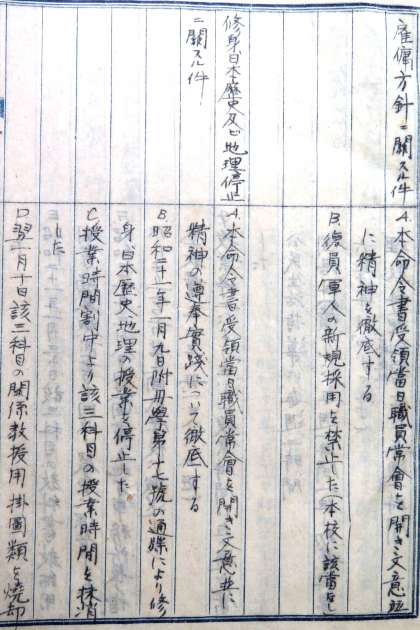 雇傭方針ニ關スル件
A.本命令書受領當日職員常會を開き文意並
に精神を徹底する
B.復員軍人の新規採用を禁止した(本校に該當なし
修身、日本歷史及ビ地理停止
ニ關スル件
A.本命令書受領當日職員常會を開き文意並に
精神の遵奉實踐について徹底する
B昭和二十一年一月九日附丹學第十七號の通牒により修
身、日本歷史、地理の授業を停止した
C授業時間割中より該三科目の授業時間を抹消
した
D翌一月十日該三科目の関係教授用掛圖類を燒却